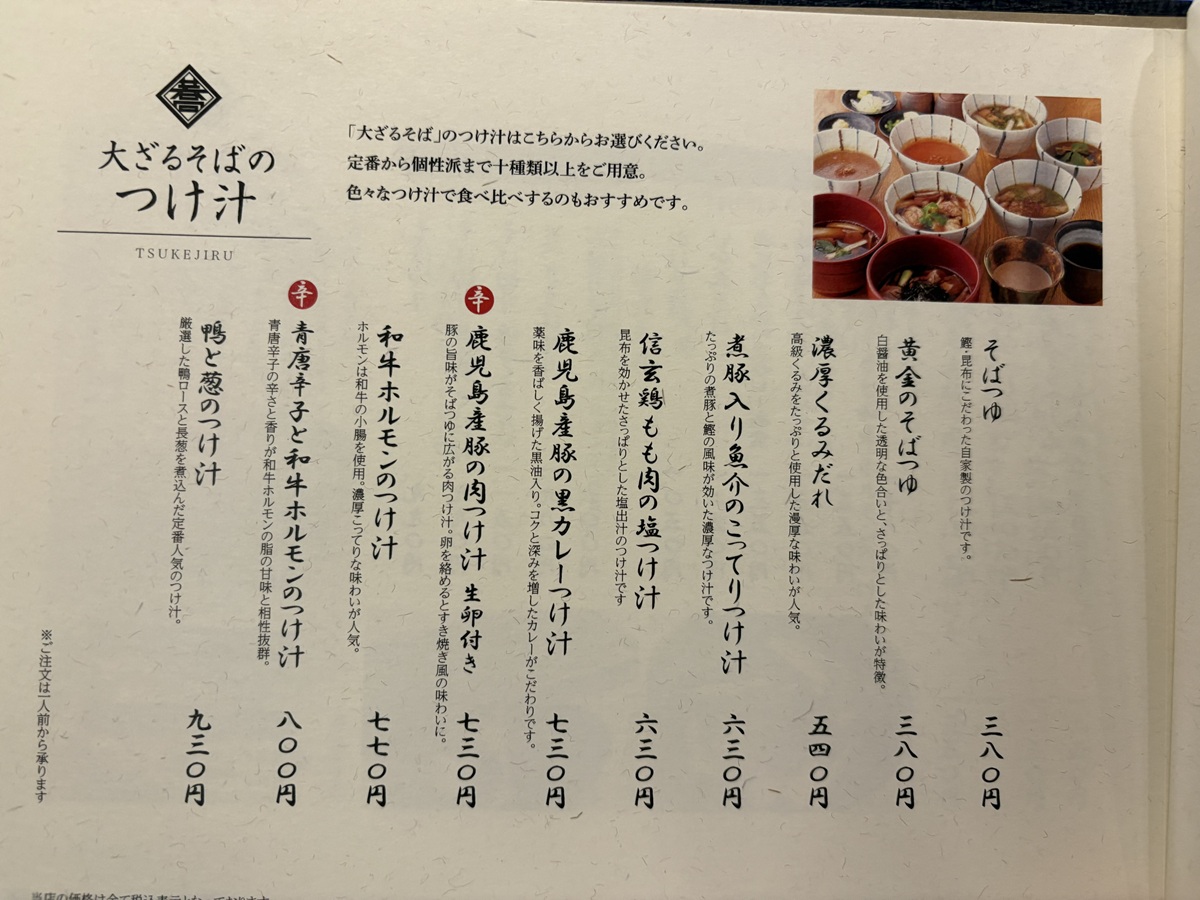 大ざるそばの
つけ汁
TSUKEJIRU
「大ざるそば」のつけ汁はこちらからお選びください。
定番から個性派まで十種類以上をご用意。
色々なつけ汁で食べ比べするのもおすすめです。
そばつゆ
鰹・昆布にこだわった自家製のつけ汁です。
三八〇円
黄金のそばつゆ
白醤油を使用した透明な色合いと、さっぱりとした味わいが特徴。
三八〇円
濃厚くるみだれ
高級くるみをたっぷりと使用した漫厚な味わいが人気。
五四〇円
煮豚入り魚介のこってりつけ汁
たっぷりの煮豚と鰹の風味が効いた濃厚なつけ汁です。
六三〇円
信玄鶏もも肉の塩つけ汁
昆布を効かせたさっぱりとした塩出汁のつけ汁です
六三〇円
鹿児島産豚の黒カレーつけ汁
薬味を香ばしく揚げた黒油入り。コクと深みを増したカレーがこだわりです。
七三〇円
辛
鹿児島産豚の肉つけ汁 生卵付き
豚の旨味がそばつゆに広がる肉つけ汁。卵を絡めるとすき焼き風の味わいに。
七三〇円
和牛ホルモンのつけ汁
ホルモンは和牛の小腸を使用。濃厚こってりな味わいが人気。
七七〇円
辛
青唐辛子と和牛ホルモンのつけ汁
青唐辛子の辛さと香りが和牛ホルモンの脂の甘味と相性抜群。
八〇〇円
鴨と葱のつけ汁
厳選した鴨ロースと長葱を煮込んだ定番人気のつけ汁。
九三〇円
※ご注文は一人前から承ります
当店の価格は全て税込表示となっております